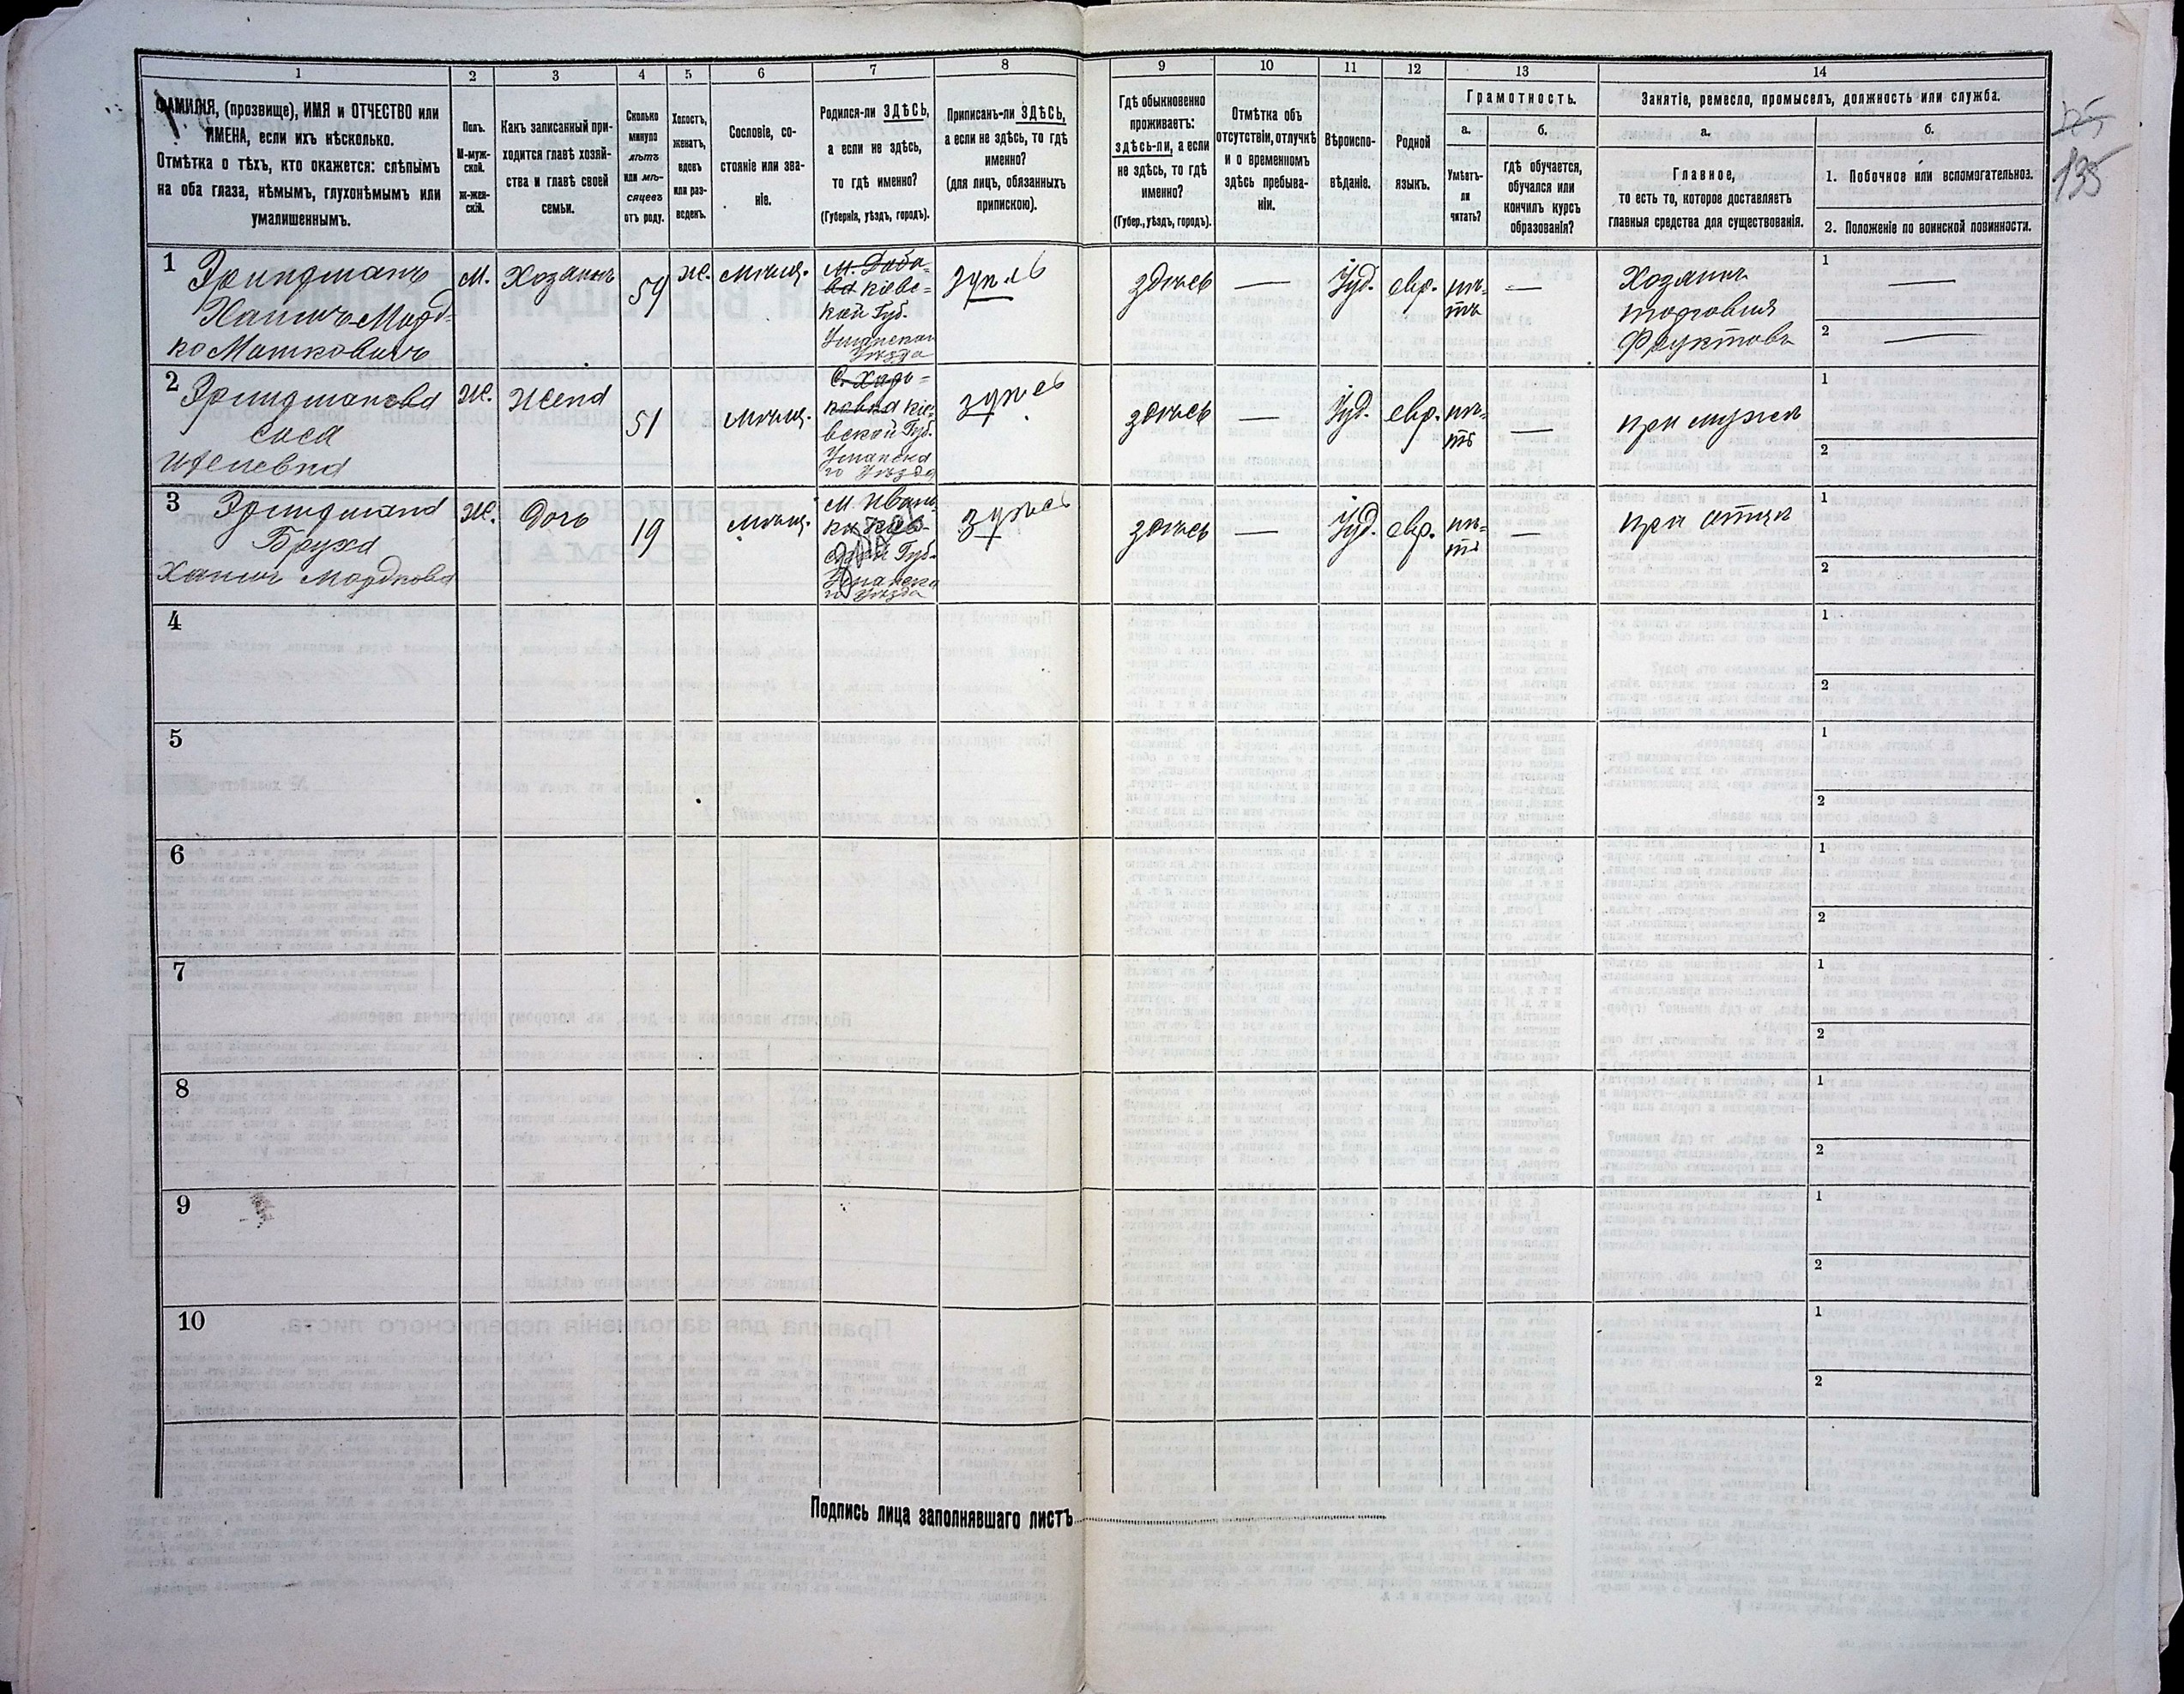 1 2 3 4 5 6 7 8 9 10 11 12 13 14
ФАМИЛІЯ, (прозвище), ИМЯ и ОТЧЕСТВО или
ИМЕНА, если ихъ нѣсколько.
Отмѣтка о тѣхъ, кто окажется: слѣпымъ
на оба глаза, нѣмымъ, глухонѣмымъ или
умалишеннымъ.
Полъ.
М-муж-
ской.
ж-жен-
скій.
Какъ записанный при-
ходится главѣ хозяй-
ства и главѣ своей
семьи.
Сколько
минуло
лѣтъ
или мѣ-
сяцевъ
отъ роду.
Холостъ,
женатъ,
вдовъ
или раз-
веденъ.
Сословіе, со-
стояніе или зва-
ніе.
Родился-ли ЗДѢСЬ,
а если не здѣсь,
то гдѣ именно?
(Губернія, уѣздъ, городъ).
Приписанъ-ли ЗДѢСЬ,
а если не здѣсь, то гдѣ
именно?
(для лицъ, обязанныхъ
припискою).
Гдѣ обыкновенно
проживаетъ:
здѣсь-ли, а если
не здѣсь, то гдѣ
именно?
(Губер., уѣздъ, городъ).
Отмѣтка объ
отсутствіи, отлучкѣ
и о временномъ
здѣсь пребыва-
ніи.
Вѣроиспо-
вѣданіе.
Родной
языкъ.
Грамотность.
а. б.
Умѣетъ-
ли
читать?
Гдѣ обучается,
обучался или
кончилъ курсъ
образованія?
Занятіе, ремесло, промыселъ, должность или служба.
а. б.
Главное,
то есть то, которое доставляетъ
главныя средства для существованія.
1. Побочное или вспомогательное.
2. Положеніе по воинской повинности.
135
1
Хаимъ-Морд-
ко Машковичъ
М.
Хозяинъ
59
Ж.
Мѣщ.
Кіевс-
кой Губ.
Уманскаго
Уѣзда
здѣсь
здѣсь
—
Іуд.
евр.
нѣ-
тъ
—
Хозяинъ
торговля
Фруктовъ
1 —
2 —
2
Ж.
Жена
51
Мѣщ.
Кіе-
вской Губ.
Уманска
го Уѣзда
здѣсь
здѣсь
—
Іуд.
евр.
нѣ-
тъ
—
при мужѣ
1
2
3
Бруха
Хаимъ Мордкова
Ж.
Дочь
19
Мѣщ.
здѣсь
здѣсь
—
Іуд.
евр.
нѣ-
тъ
—
при отцѣ
1
2
4
1
2
5
1
2
6
1
2
7
1
2
8
1
2
9
1
2
10
1
2
Подпись лица заполнявшаго листъ